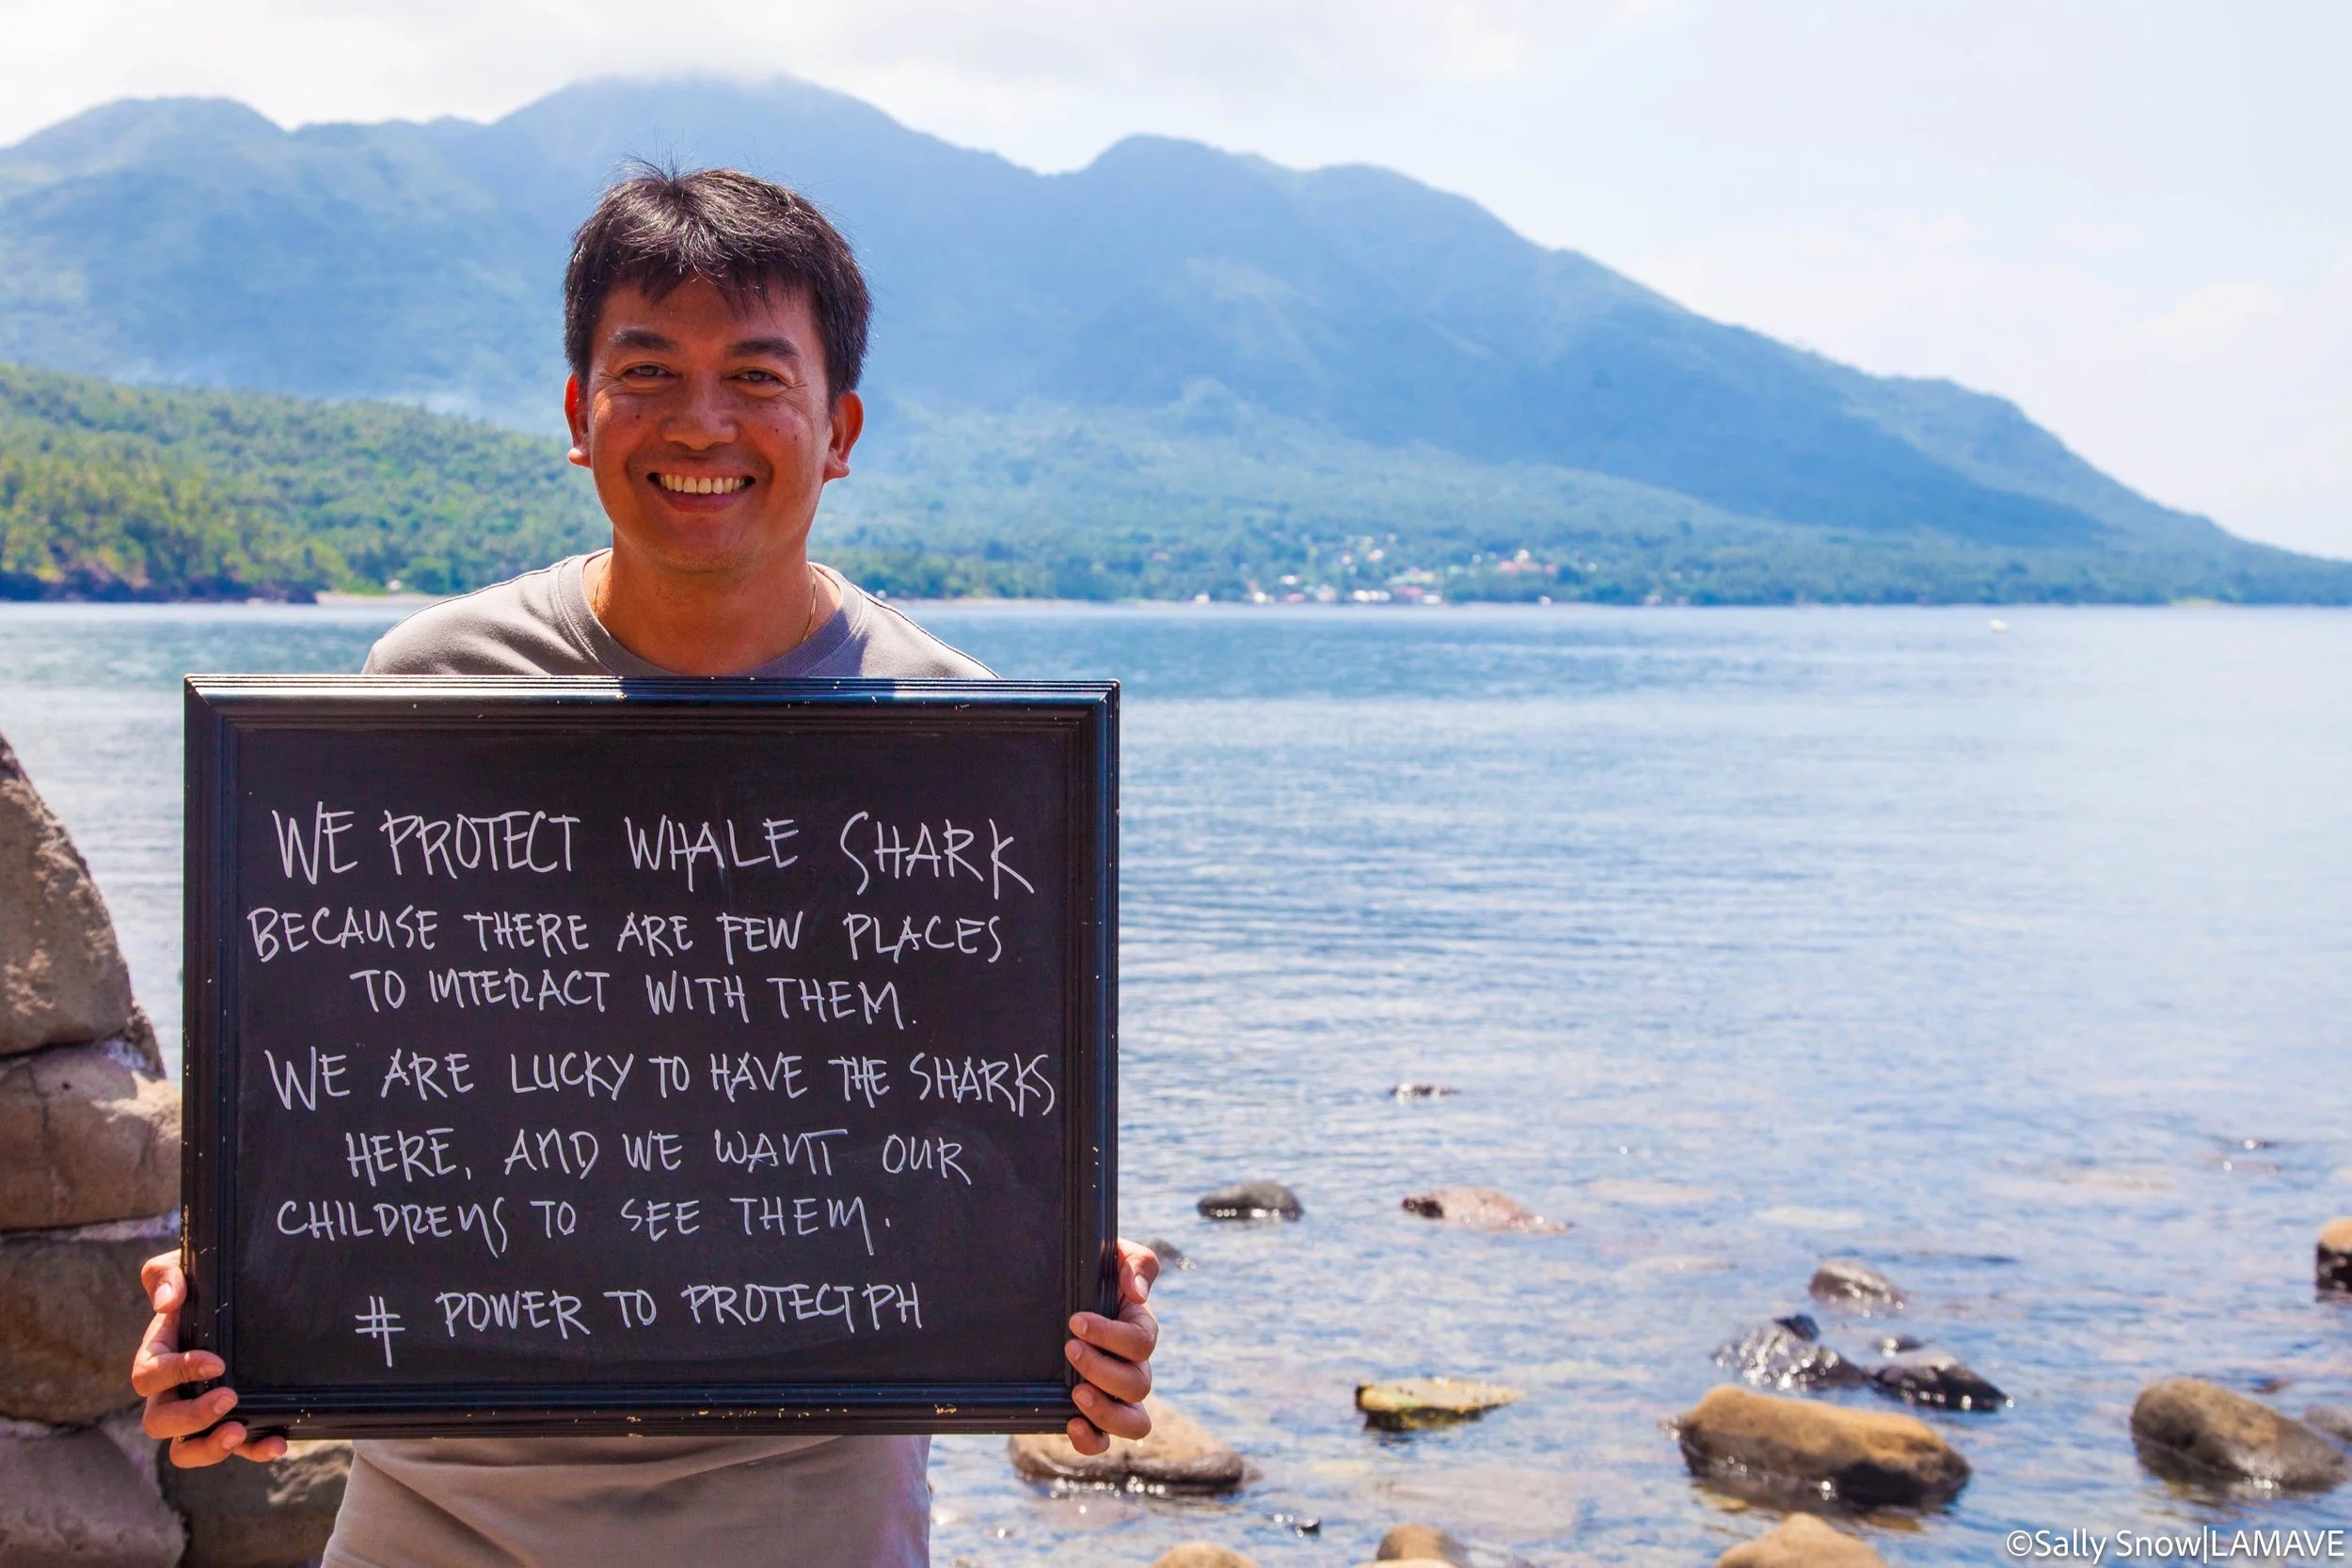 WE PROTECT WHALE SHARK
BECAUSE THERE ARE FEW PLACES
TO INTERACT WITH THEM.
WE ARE LUCKY TO HAVE THE SHARKS
HERE, AND WE WANT OUR
CHILDRENS TO SEE THEM.
# POWER TO PROTECTPH
©Sally Snow|LAMAVE